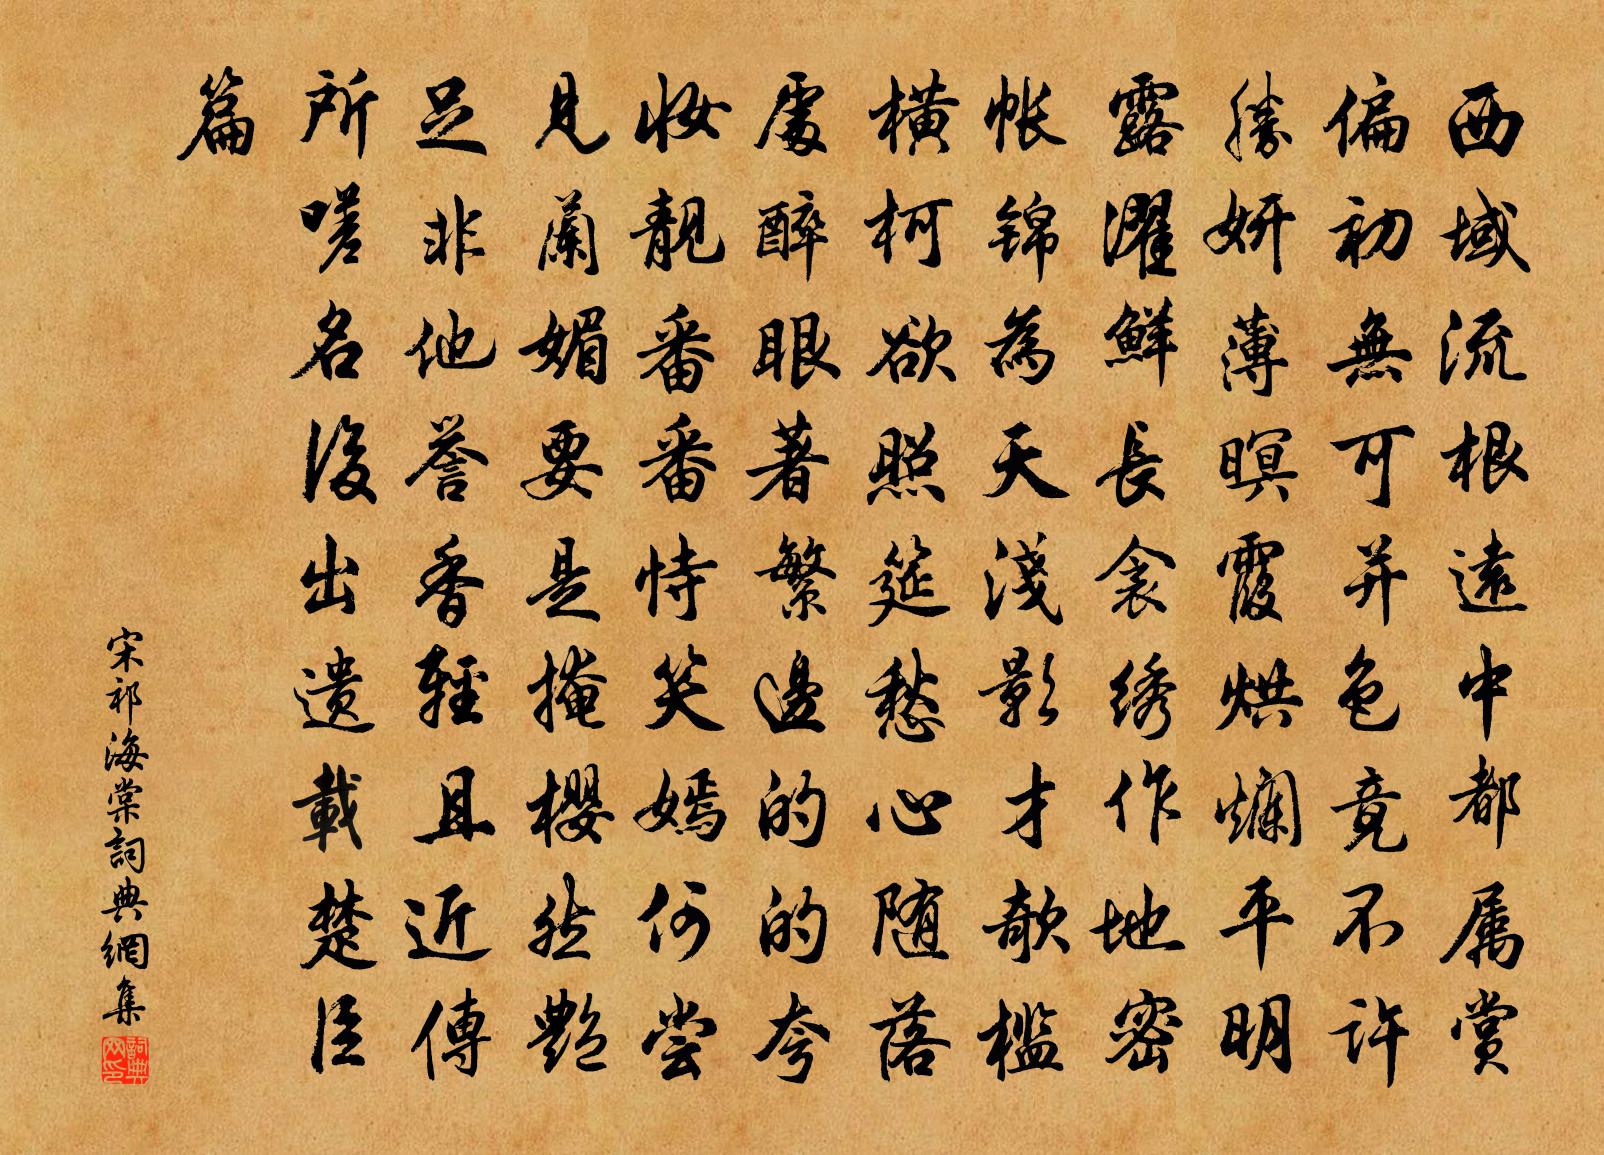 西域流根遠中都属赏
偏初無可并色竟不许
勝妍薄暝霞烘爛平明
露濯鮮長衾绣作地密
帐锦為天淺影才欹檻
横柯欲照筵愁心随落
處醉眼著繁邊的的夸
妆靓番番恃笑嫣何尝
見蘭媚要是掩櫻然艷
足非他誉香輕且近傳
所嗟名後出遗載楚臣
篇
宋祁海棠詞典網集
詞典网印